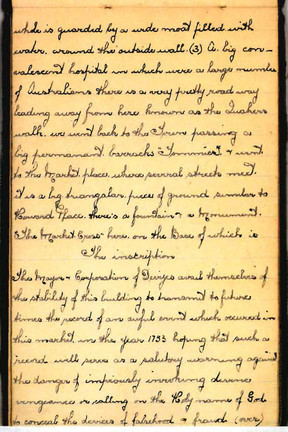 whole is guarded by a wide moat filled with
water, around the outside wall. (3) A. big con-
valescent hospital in which were a large number
of Australians there is a very pretty road way
leading away from here known as the Quakers
walk. we went back to the Town passing a
big permanant barracks "Tommies". & went
to the Market place where several streets meet.
it is a big triangular piece of ground similar to
Howard Place. there's a fountain & a Monument.
The Market Cross here. on the Base of which is
The inscription
The Mayor & Corporation of Devizes avail themselves of
the stability of this building to transmit to future
times the record of an awful event which occured in
this market in the year 1753 hoping that such a
record will serve as a salutary warning against
the danger of impiously invoking divine
vengeance or calling on the Holy name of God
to conceal the devices of falsehood & fraud (over)